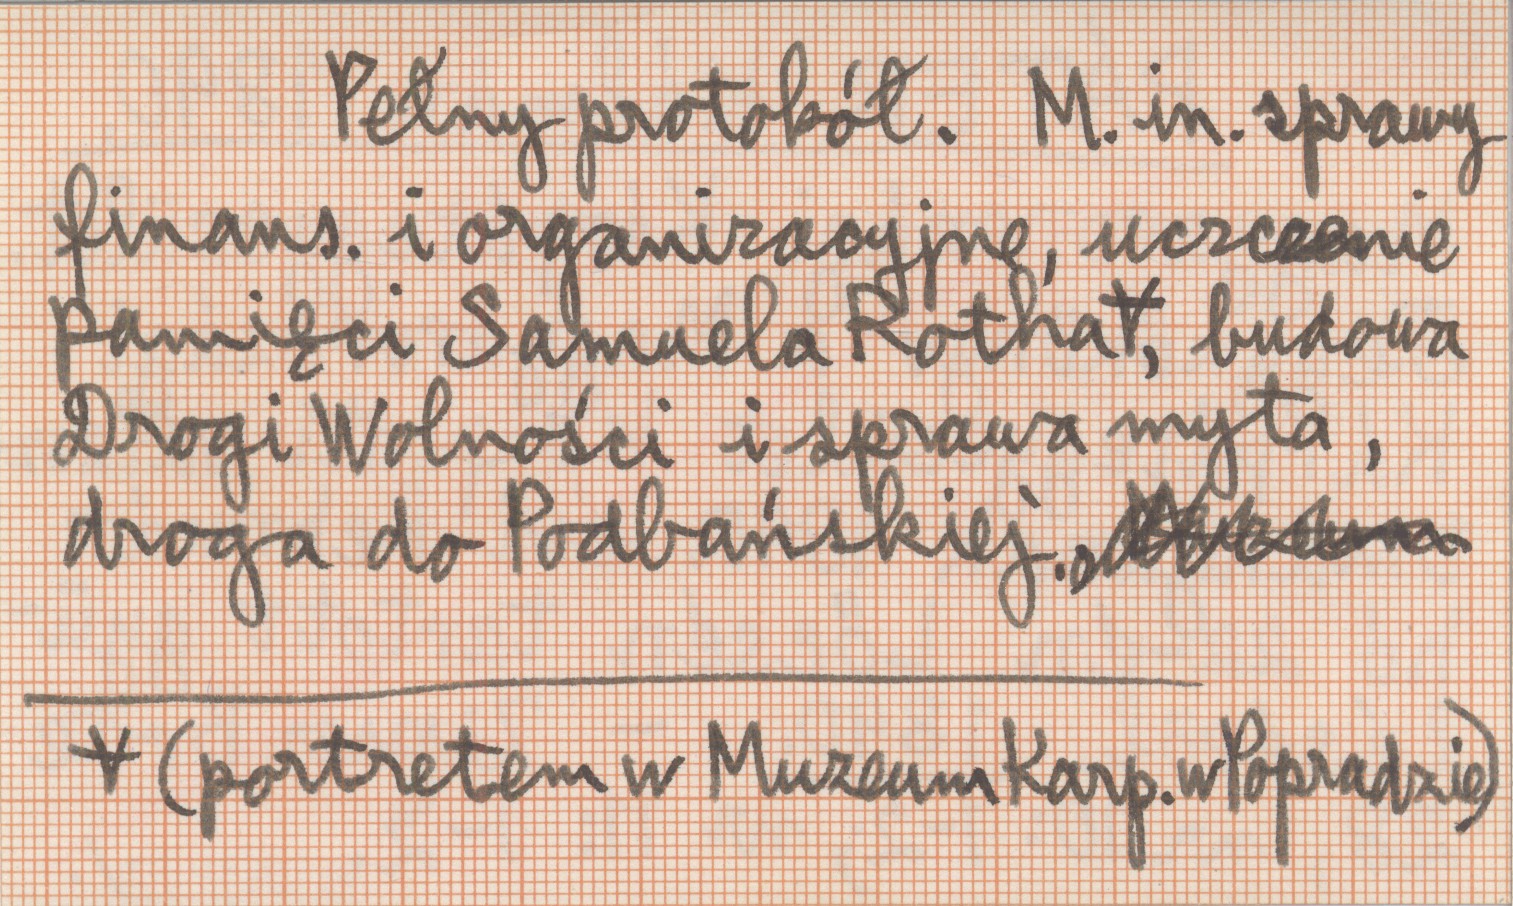 Pełny protokół. M. in. sprawy
finans. i organizacyjne, uczczenie
pamięci Samuela Rotha*, budowa
Drogi Wolności i sprawa myta,
droga do Podbańskiej.
* (portretem w Muzeum Karp. w Popradzie)